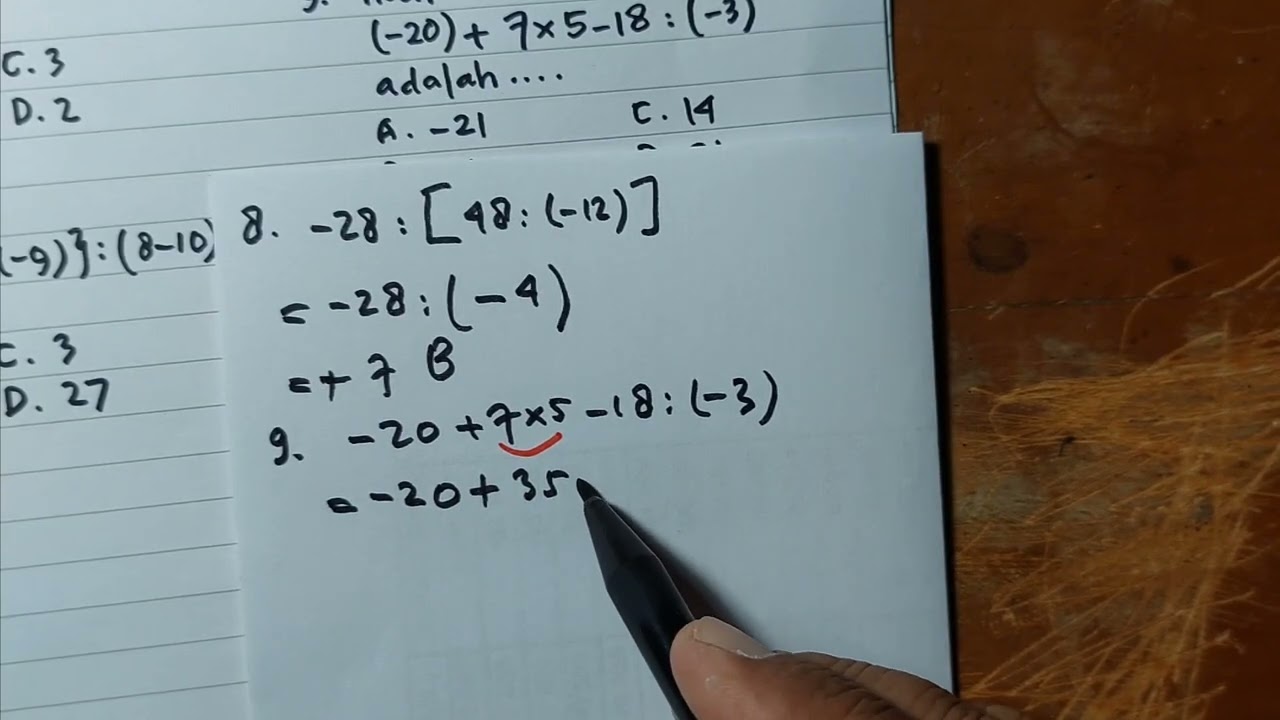 (-20)+ 7×5-18:(-3)
adalah....
A. -21 C. 14
C. 3
D. 2
-9)}:(8-10)
C. 3
D. 27
8. -28:[48:(-12)]
= -28:(-4)
=+7 B
9. -20+7×5-18:(-3)
= -20+35